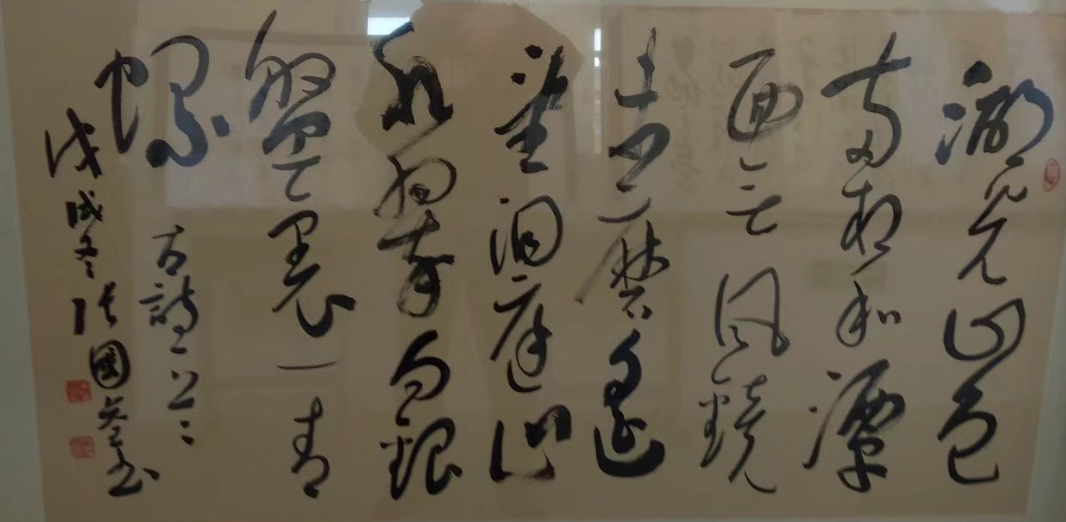 湖光山色
两相和潭
面无风镜
未磨遥
望洞庭山
水翠白银
盘里一青
螺
古詩一
戊戌冬张國书